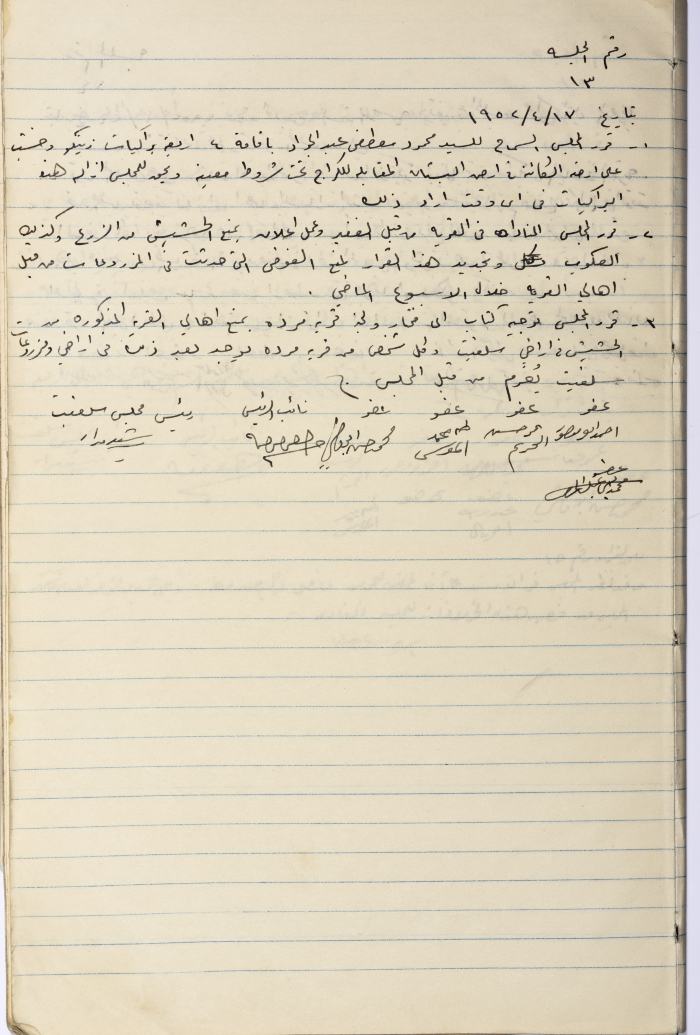 رقم الجلسه
١٣
بتاريخ ١٩٥٢/٤/١٧
١- قرر المجلس السماح للسيد محمود مصطفى عبد الجواد باقامة ٤ اربعة براكيات زينكو وخشب
على ارضه الكائنة في ارض البستان المقابله للكراج تحت شروط معينة ويحق للمجلس ازاله هذه
البراكيات في اي وقت اراد ذلك
٢- قرر المجلس المناداه في القريه من قبل الغفير وعمل اعلان بمنع الحشيش من الزرع وكذلك
العكوب وتجديد هذا القرار لمنع الفوضى التي حدثت في المزروعات من قبل
اهالي القرية خلال الاسبوع الماضي .
٣- قرر المجلس توجيه كتاب الى مختار ولجنة قرية مرده بمنع اهالي القريه المذكوره من
الحشيش في اراضي سلفيت وكل شخص من قريه مرده يوجد بعد ذلك في اراضي ومزروعات
سلفيت يُغرم من قبل المجلس
عضو عضو عضو عضو نائب الرئيس رئيس مجلس سلفيت
محمد حسن
عضو